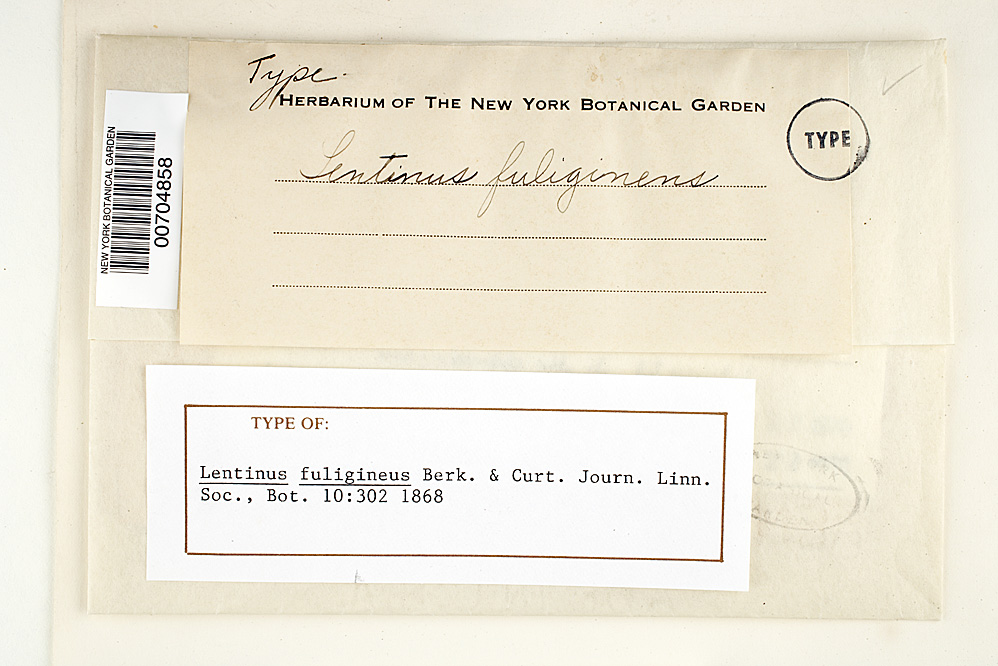 Type.
HERBARIUM OF THE NEW YORK BOTANICAL GARDEN
TYPE
Lentinus fuligineus
NEW YORK BOTANICAL GARDEN
00704858
TYPE OF:
Lentinus fuligineus Berk. & Curt. Journ. Linn.
Soc., Bot. 10:302 1868